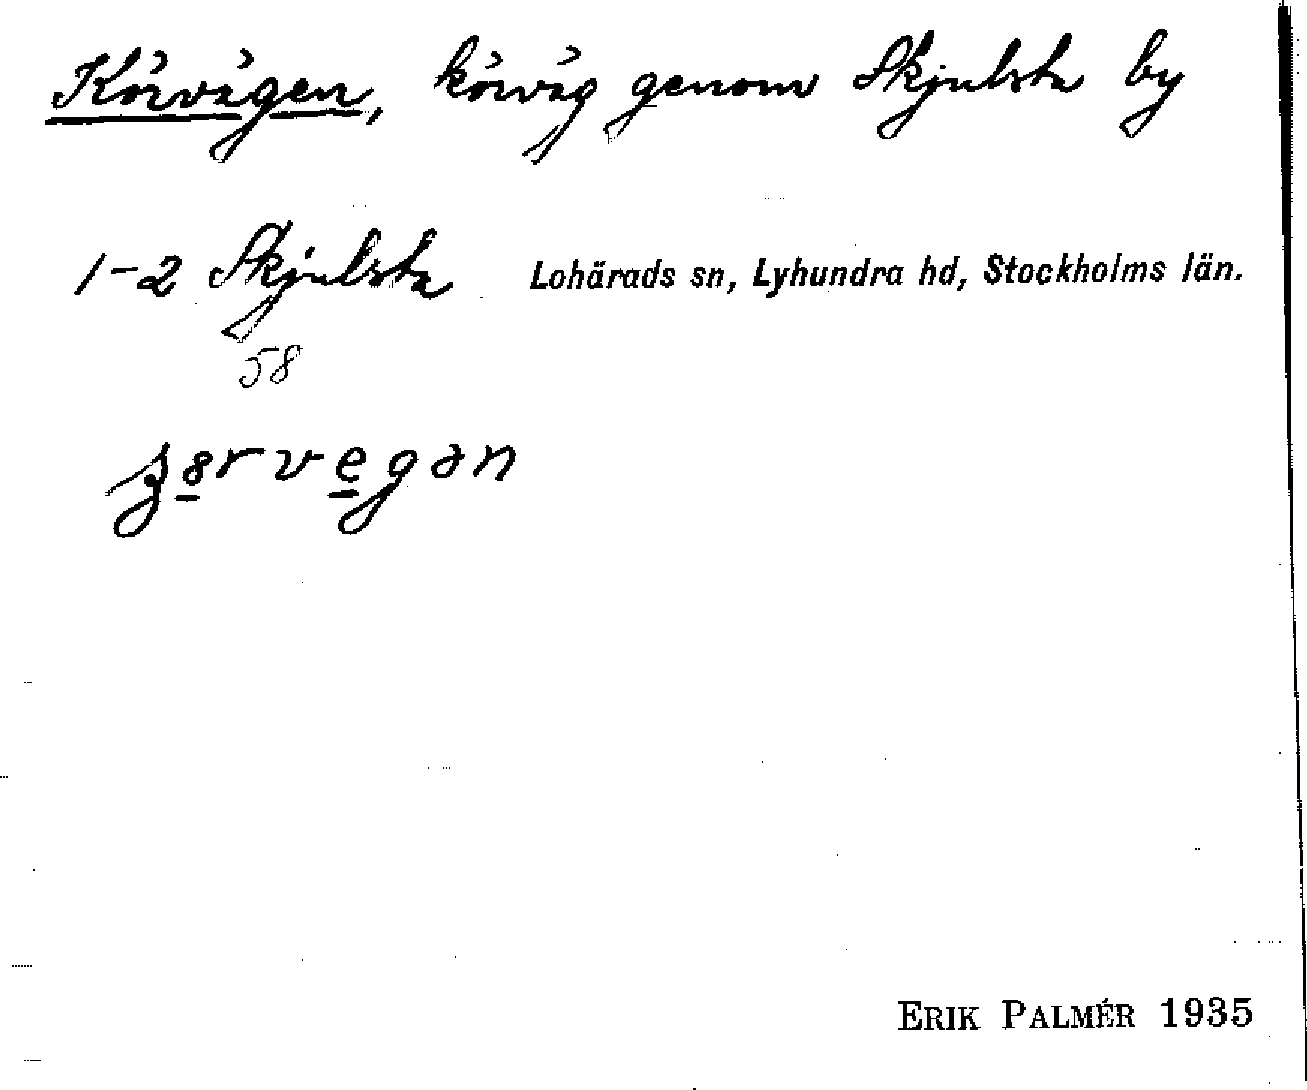 Körvägen, körväg genom Skjulsta by
1-2 Skjulsta Lohärads sn, Lyhundra hd, Stockholms län.
58
ERIK PALMÉR 1935